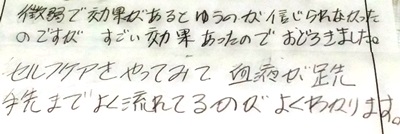 微弱で効果があるとゆうのが信じられなかった
のですが すごい効果あったのでおどろきました。
セルフケアをやってみて 血液が足先
手先までよく流れてるのがよくわかります。